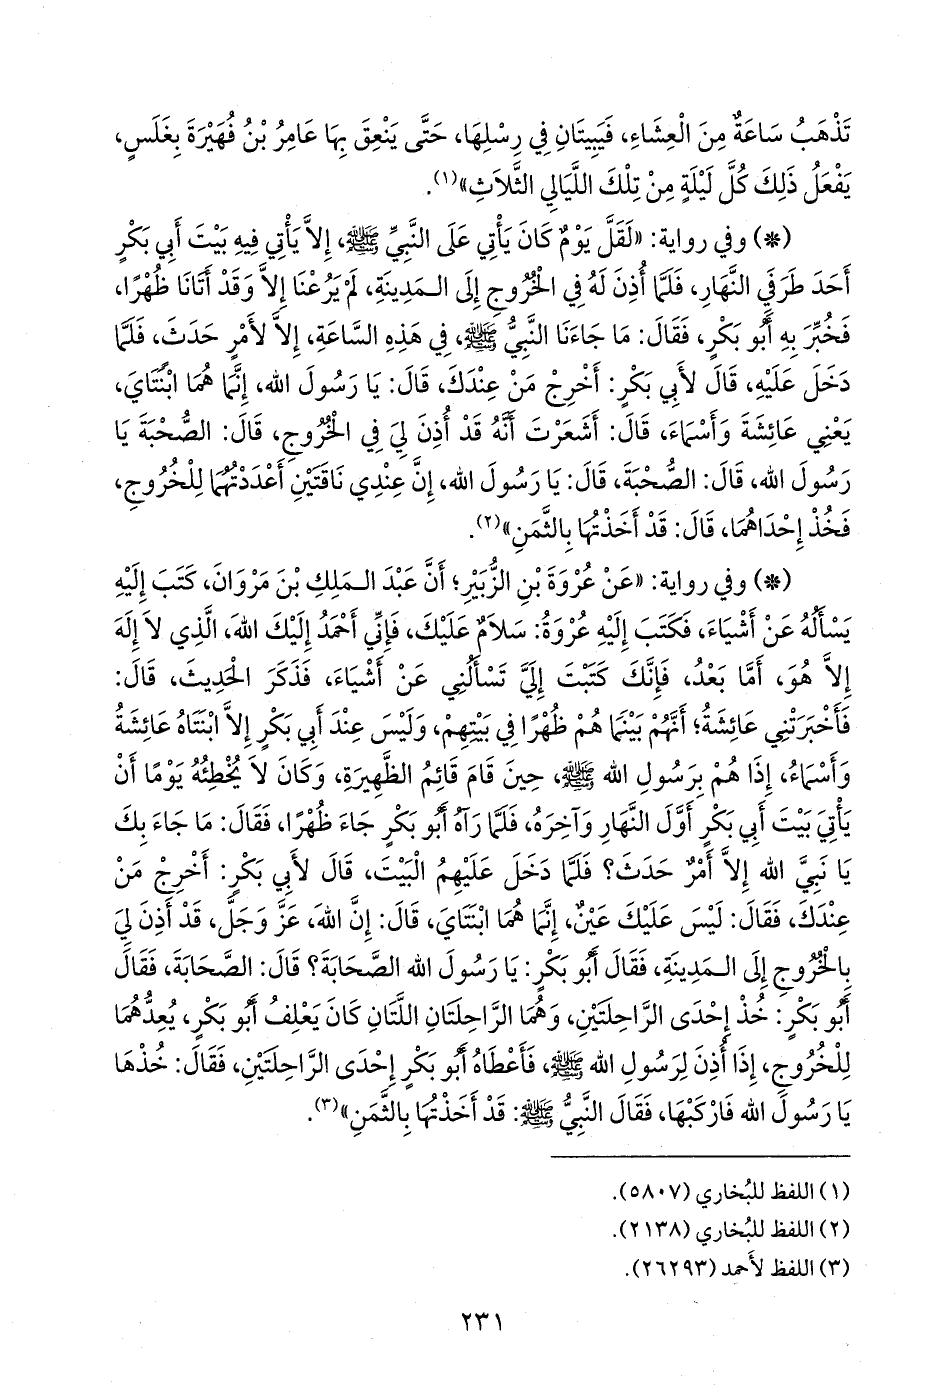 تَذْهَبُ سَاعَةٌ مِنَ الْعِشَاءِ، فَيَبِيتَانِ فِي رِسْلِهَا، حَتَّى يَنْعِقَ بِهَا عَامِرُ بْنُ فُهَيْرَةَ بِغَلَسٍ،
يَفْعَلُ ذَلِكَ كُلَّ لَيْلَةٍ مِنْ تِلْكَ اللَّيَالِي الثَّلاَثِ»(١).
(*) وفي رواية: «لَقَلَّ يَوْمٌ كَانَ يَأْتِي عَلَى النَّبِيِّ ﷺ، إِلاَّ يَأْتِي فِيهِ بَيْتَ أَبِي بَكْرٍ
أَحَدَ طَرَفَيِ النَّهَارِ، فَلَمَّا أُذِنَ لَهُ فِي الْخُرُوجِ إِلَى الـمَدِينَةِ، لَمْ يَرُعْنَا إِلاَّ وَقَدْ أَتَانَا ظُهْرًا،
فَخُبِّرَ بِهِ أَبُو بَكْرٍ، فَقَالَ: مَا جَاءَنَا النَّبِيُّ ﷺ، فِي هَذِهِ السَّاعَةِ، إِلاَّ لأَمْرٍ حَدَثَ، فَلَمَّا
دَخَلَ عَلَيْهِ، قَالَ لأَبِي بَكْرٍ: أَخْرِجْ مَنْ عِنْدَكَ، قَالَ: يَا رَسُولَ الله، إِنَّمَا هُمَا ابْنَتَايَ،
يَعْنِي عَائِشَةَ وَأَسْمَاءَ، قَالَ: أَشَعَرْتَ أَنَّهُ قَدْ أُذِنَ لِي فِي الْخُرُوجِ، قَالَ: الصُّحْبَةَ يَا
رَسُولَ الله، قَالَ: الصُّحْبَةَ، قَالَ: يَا رَسُولَ الله، إِنَّ عِنْدِي نَاقَتَيْنِ أَعْدَدْتُهُمَا لِلْخُرُوجِ،
فَخُذْ إِحْدَاهُمَا، قَالَ: قَدْ أَخَذْتُهَا بِالثَّمَنِ»(٢).
(*) وفي رواية: «عَنْ عُرْوَةَ بْنِ الزُّبَيْرِ؛ أَنَّ عَبْدَ الـمَلِكِ بْنَ مَرْوَانَ، كَتَبَ إِلَيْهِ
يَسْأَلُهُ عَنْ أَشْيَاءَ، فَكَتَبَ إِلَيْهِ عُرْوَةُ: سَلاَمٌ عَلَيْكَ، فَإِنِّي أَحْمَدُ إِلَيْكَ اللهَ، الَّذِي لاَ إِلَهَ
إِلاَّ هُوَ، أَمَّا بَعْدُ، فَإِنَّكَ كَتَبْتَ إِلَيَّ تَسْأَلُنِي عَنْ أَشْيَاءَ، فَذَكَرَ الْحَدِيثَ، قَالَ:
فَأَخْبَرَتْنِي عَائِشَةُ؛ أَنَّهُمْ بَيْنَمَا هُمْ ظُهْرًا فِي بَيْتِهِمْ، وَلَيْسَ عِنْدَ أَبِي بَكْرٍ إِلاَّ ابْنَتَاهُ عَائِشَةُ
وَأَسْمَاءُ، إِذَا هُمْ بِرَسُولِ الله ﷺ، حِينَ قَامَ قَائِمُ الظَّهِيرَةِ، وَكَانَ لاَ يُخْطِئُهُ يَوْمًا أَنْ
يَأْتِيَ بَيْتَ أَبِي بَكْرٍ أَوَّلَ النَّهَارِ وَآخِرَهُ، فَلَمَّا رَآهُ أَبُو بَكْرٍ جَاءَ ظُهْرًا، فَقَالَ: مَا جَاءَ بِكَ
يَا نَبِيَّ الله إِلاَّ أَمْرٌ حَدَثَ؟ فَلَمَّا دَخَلَ عَلَيْهِمُ الْبَيْتَ، قَالَ لأَبِي بَكْرٍ: أَخْرِجْ مَنْ
عِنْدَكَ، فَقَالَ: لَيْسَ عَلَيْكَ عَيْنٌ، إِنَّمَا هُمَا ابْنَتَايَ، قَالَ: إِنَّ اللهَ، عَزَّ وَجَلَّ، قَدْ أَذِنَ لِي
بِالْخُرُوجِ إِلَى الـمَدِينَةِ، فَقَالَ أَبُو بَكْرٍ: يَا رَسُولَ الله الصَّحَابَةَ؟ قَالَ: الصَّحَابَةَ، فَقَالَ
أَبُو بَكْرٍ: خُذْ إِحْدَى الرَّاحِلَتَيْنِ، وَهُمَا الرَّاحِلَتَانِ اللَّتَانِ كَانَ يَعْلِفُ أَبُو بَكْرٍ، يُعِدُّهُمَا
لِلْخُرُوجِ، إِذَا أُذِنَ لِرَسُولِ الله ﷺ، فَأَعْطَاهُ أَبُو بَكْرٍ إِحْدَى الرَّاحِلَتَيْنِ، فَقَالَ: خُذْهَا
يَا رَسُولَ الله فَارْكَبْهَا، فَقَالَ النَّبِيُّ ﷺ: قَدْ أَخَذْتُهَا بِالثَّمَنِ»(٣).
(١) اللفظ للبُخاري (٥٨٠٧).
(٢) اللفظ للبُخاري (٢١٣٨).
(٣) اللفظ لأَحمد (٢٦٢٩٣).
٢٣١